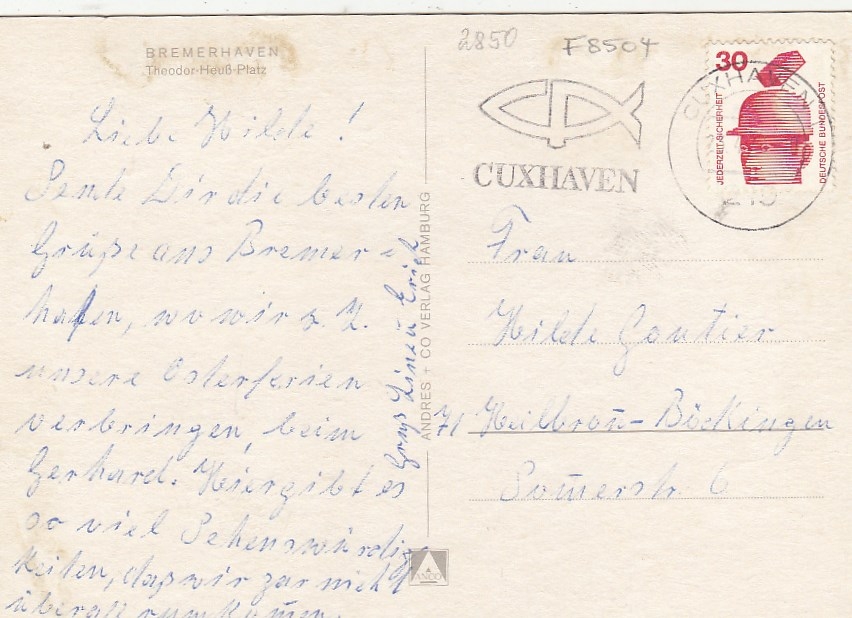 BREMERHAVEN
Theodor-Heuß-Platz
2850
F8504
30
JEDERZEIT SICHERHEIT
DEUTSCHE BUNDESPOST
CUXHAVEN
CUXHAVEN
Liebe Hilde!
Sende Dir die besten
Grüße aus Bremer-
hafen, wo wir z. Z.
unsere Osterferien
verbringen, beim
Gerhard. Hier gibt es
so viel Sehenswürdig
keiten, daß wir gar nicht
überall rumkom̄en.
Gruß Erich
ANDRES + CO VERLAG HAMBURG
Frau
Hilde Gautier
71 Heilbron̄-Böckingen
Som̄erstr. 6
ANCO